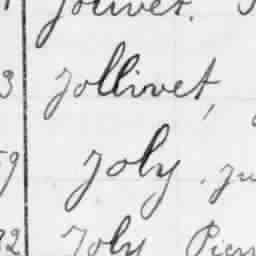 Jouvet.
3 Jollivet,
59 Joly. Ju
92 Joly Pierr